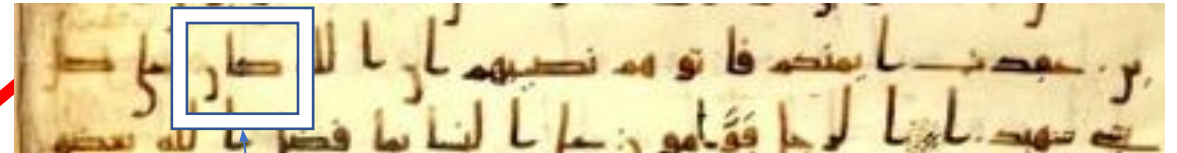 ين عقدت ايمنكم فاتوهم نصيبهم ان الله كان على كل
شى شهيدا الرجل قومون على النسا بما فضل الله بعضهم